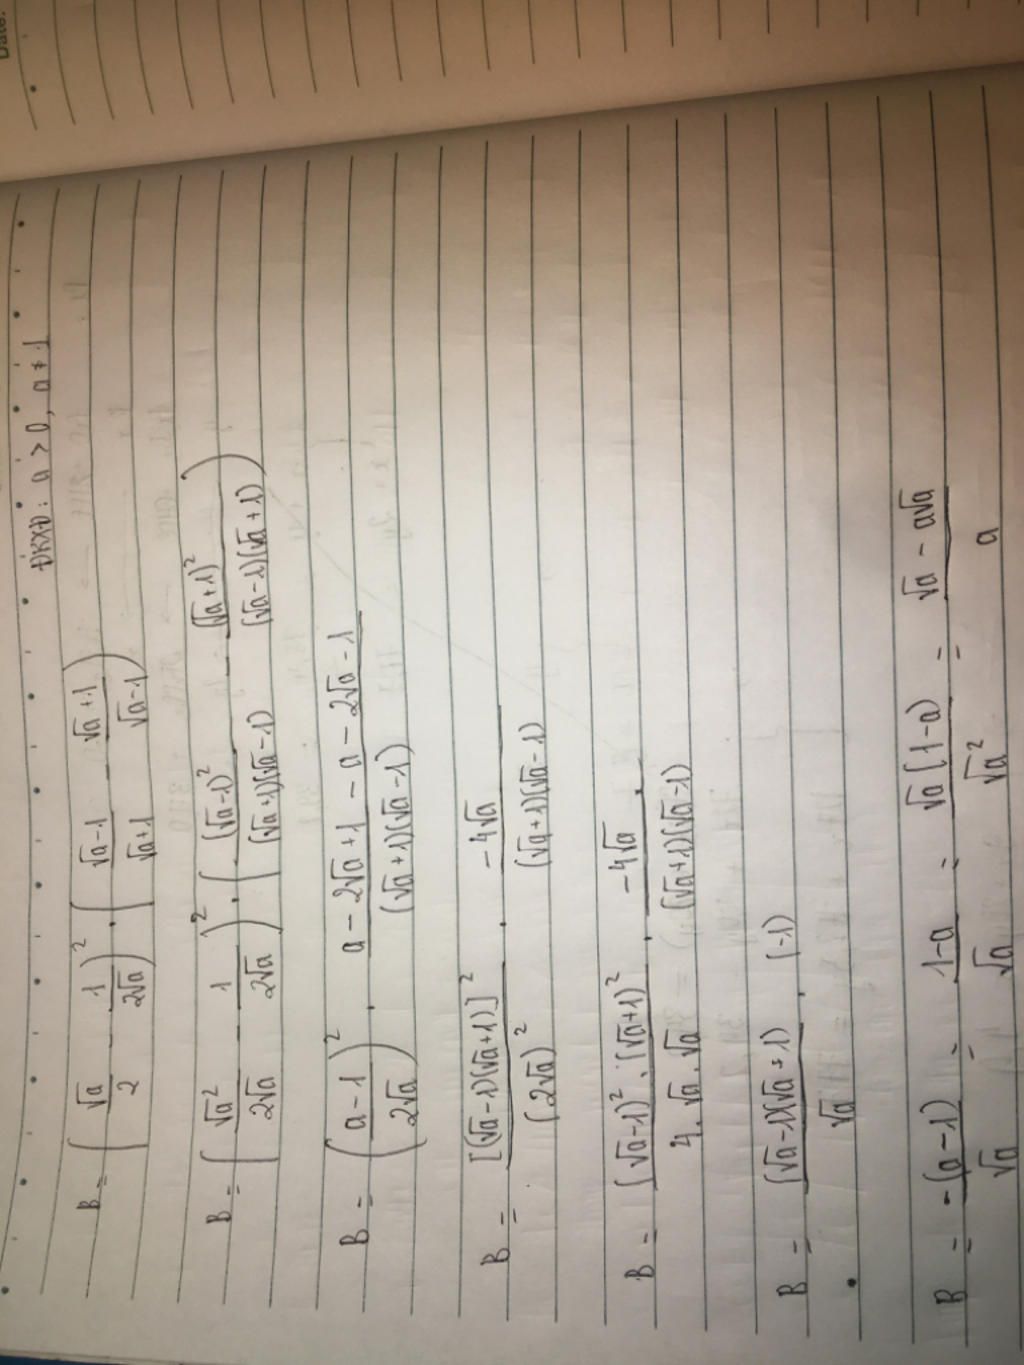 Date:
ĐKXĐ: a > 0, a ≠ 1
B = (√a/2 - 1/2√a)² . (√a-1/√a+1 - √a+1/√a-1)
B = (√a²/2√a - 1/2√a)² . ((√a-1)²/(√a+1)(√a-1) - (√a+1)²/(√a-1)(√a+1))
B = (a-1/2√a)² . a - 2√a + 1 - a - 2√a - 1/(√a+1)(√a-1)
B = [(√a-1)(√a+1)]²/(2√a)² . -4√a/(√a+1)(√a-1)
B = (√a-1)² . (√a+1)²/4.√a.√a . -4√a/(√a+1)(√a-1)
B = (√a-1)(√a+1)/√a . (-1)
B = -(a-1)/√a = 1-a/√a = √a(1-a)/√a² = √a - a√a/a